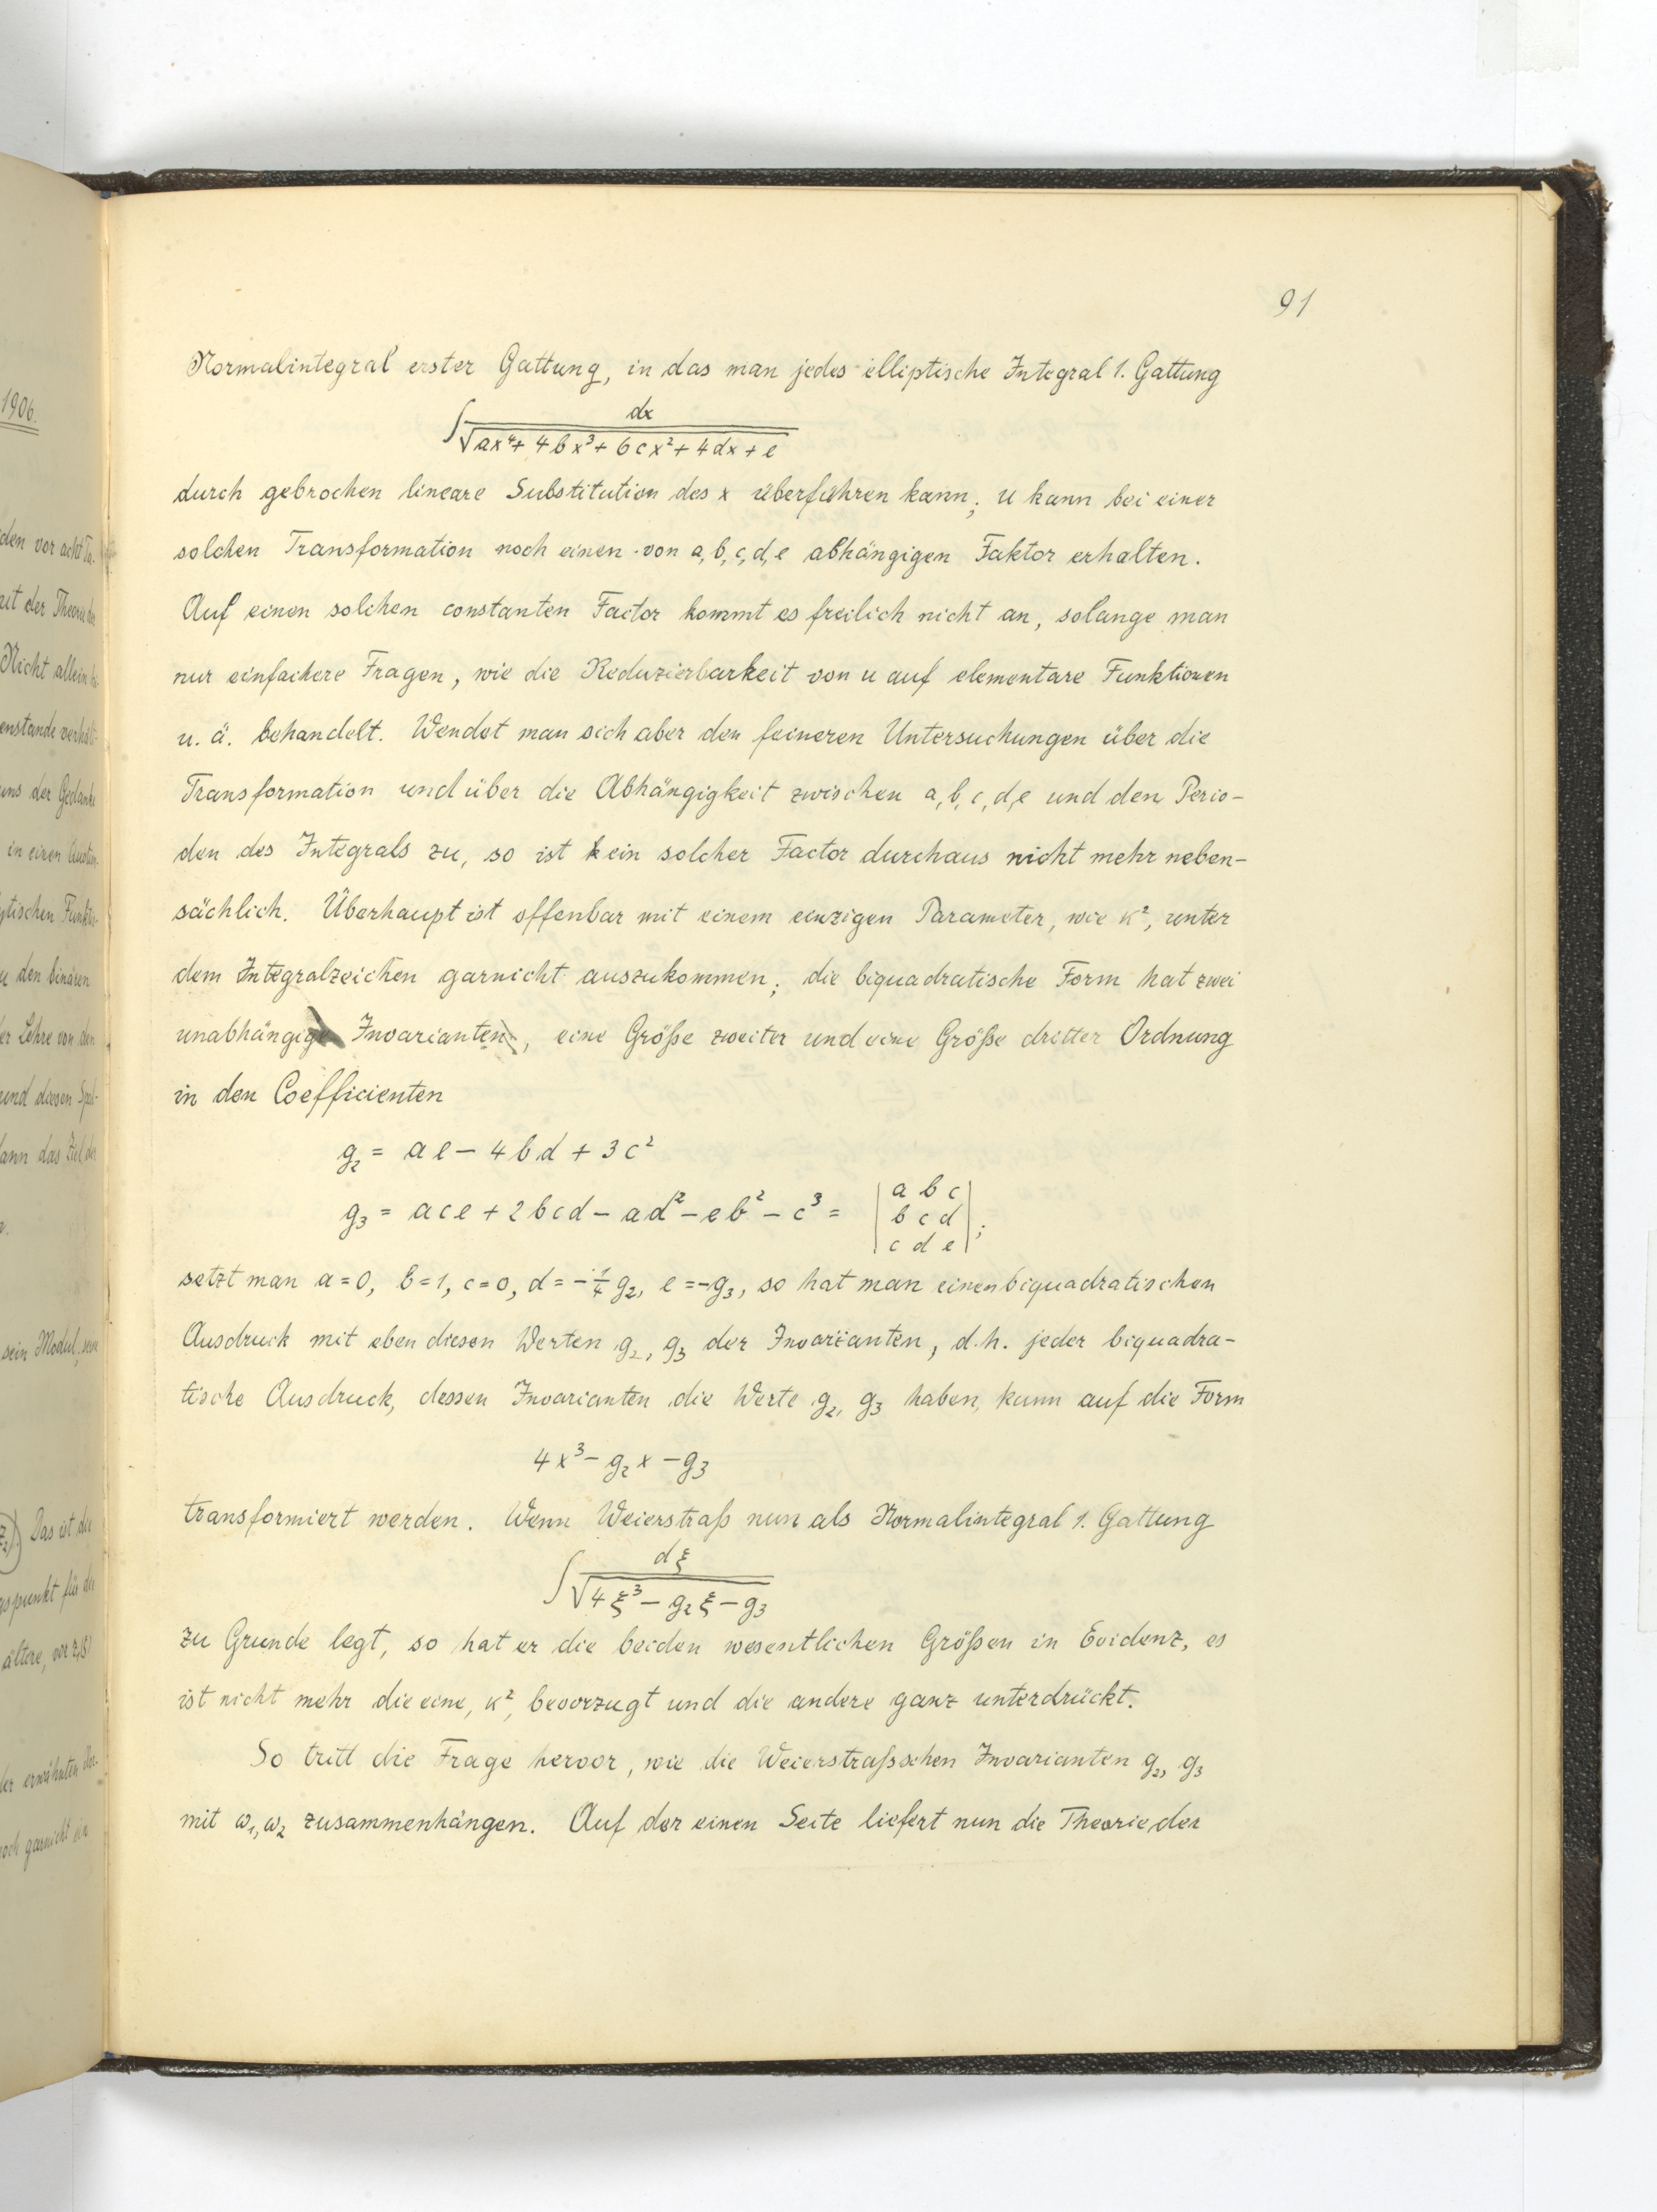 91
Normalintegral erster Gattung, in das man jedes elliptische Integral 1. Gattung
∫ dx / √(ax⁴ + 4bx³ + 6cx² + 4dx + e)
durch gebrochen lineare Substitution des x überführen kann; u kann bei einer
solchen Transformation noch einen von a, b, c, d, e abhängigen Faktor erhalten.
Auf einen solchen constanten Factor kommt es freilich nicht an, solange man
nur einfachere Fragen, wie die Reduzierbarkeit von u auf elementare Funktionen
u. ä. behandelt. Wendet man sich aber den feineren Untersuchungen über die
Transformation und über die Abhängigkeit zwischen a, b, c, d, e und den Perio-
den des Integrals zu, so ist ein solcher Factor durchaus nicht mehr neben-
sächlich. Überhaupt ist offenbar mit einem einzigen Parameter, wie κ², unter
dem Integralzeichen garnicht auszukommen; die biquadratische Form hat zwei
unabhängige Invarianten, eine Größe zweiter und eine Größe dritter Ordnung
in den Coefficienten
g₂ = ae − 4bd + 3c²
g₃ = ace + 2bcd − ad² − eb² − c³ = | a b c |
| b c d | ;
| c d e |
setzt man a = 0, b = 1, c = 0, d = −¼ g₂, e = −g₃, so hat man einen biquadratischen
Ausdruck mit eben diesen Werten g₂, g₃ der Invarianten, d. h. jeder biquadra-
tische Ausdruck, dessen Invarianten die Werte g₂, g₃ haben, kann auf die Form
4x³ − g₂x − g₃
transformiert werden. Wenn Weierstraß nun als Normalintegral 1. Gattung
∫ dξ / √(4ξ³ − g₂ξ − g₃)
zu Grunde legt, so hat er die beiden wesentlichen Größen in Evidenz, es
ist nicht mehr die eine, κ², bevorzugt und die andere ganz unterdrückt.
So tritt die Frage hervor, wie die Weierstraßschen Invarianten g₂, g₃
mit ω₁, ω₂ zusammenhängen. Auf der einen Seite liefert nun die Theorie der
1906.
den vor acht
mit der Theorie der
Nicht allein
enstande verhält
uns der Gedanke
in einen
ytischen Funktio-
u den binären
er Lehre von den
und diesen
dann das Ziel der
sein Modul,
Das ist die
spunkt für die
ältere, vor
der erwähnten
noch garnicht